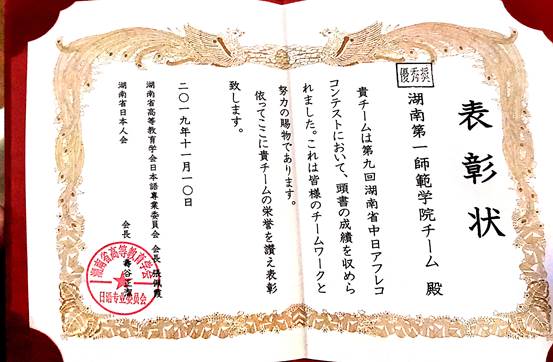 表彰状
優秀奨
湖南第一師範学院チーム 殿
貴チームは第九回湖南省中日アフレコ
コンテストにおいて、頭書の成績を収めら
れました。これは皆様のチームワークと
努力の賜物であります。
依ってここに貴チームの栄誉を讃え表彰
致します。
二〇一九年十一月一〇日
湖南省高等教育学会日本語專業委員会 会長 張佩霞
湖南省日本人会 会長 寿谷正潔
湖南省高等教育学会
日语专业委员会